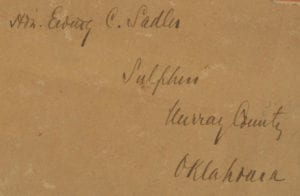 Hon. Ewing C. Sadler
Sulphur
Murray County
Oklahoma